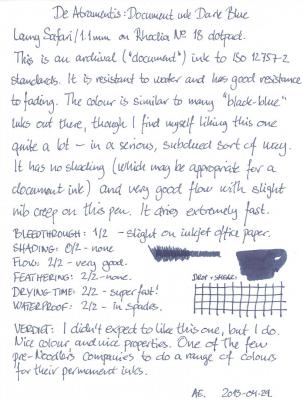 De Atramentis: Document ink Dark Blue
Lamy Safari/1.1mm on Rhodia No 18 dotpad.
This is an archival ("document") ink to ISO 12757-2
standards. It is resistant to water and has good resistance
to fading. The colour is similar to many "black-blue"
inks out there, though I find myself liking this one
quite a lot – in a serious, subdued sort of way.
It has no shading (which may be appropriate for a
document ink) and very good flow with slight
nib creep on this pen. It dries extremely fast.
BLEEDTHROUGH: 1/2 - slight on inkjet office paper.
SHADING: 0/2 - none
FLOW: 2/2 - very good.
FEATHERING: 2/2 - none.
DROP + SMEAR:
DRYING TIME: 2/2 - super fast!
WATERPROOF: 2/2 - in spades.
VERDICT: I didn't expect to like this one, but I do.
Nice colour and nice properties. One of the few
pre-Noodlers companies to do a range of colours
for their permanent inks.
AE. 2013-04-29